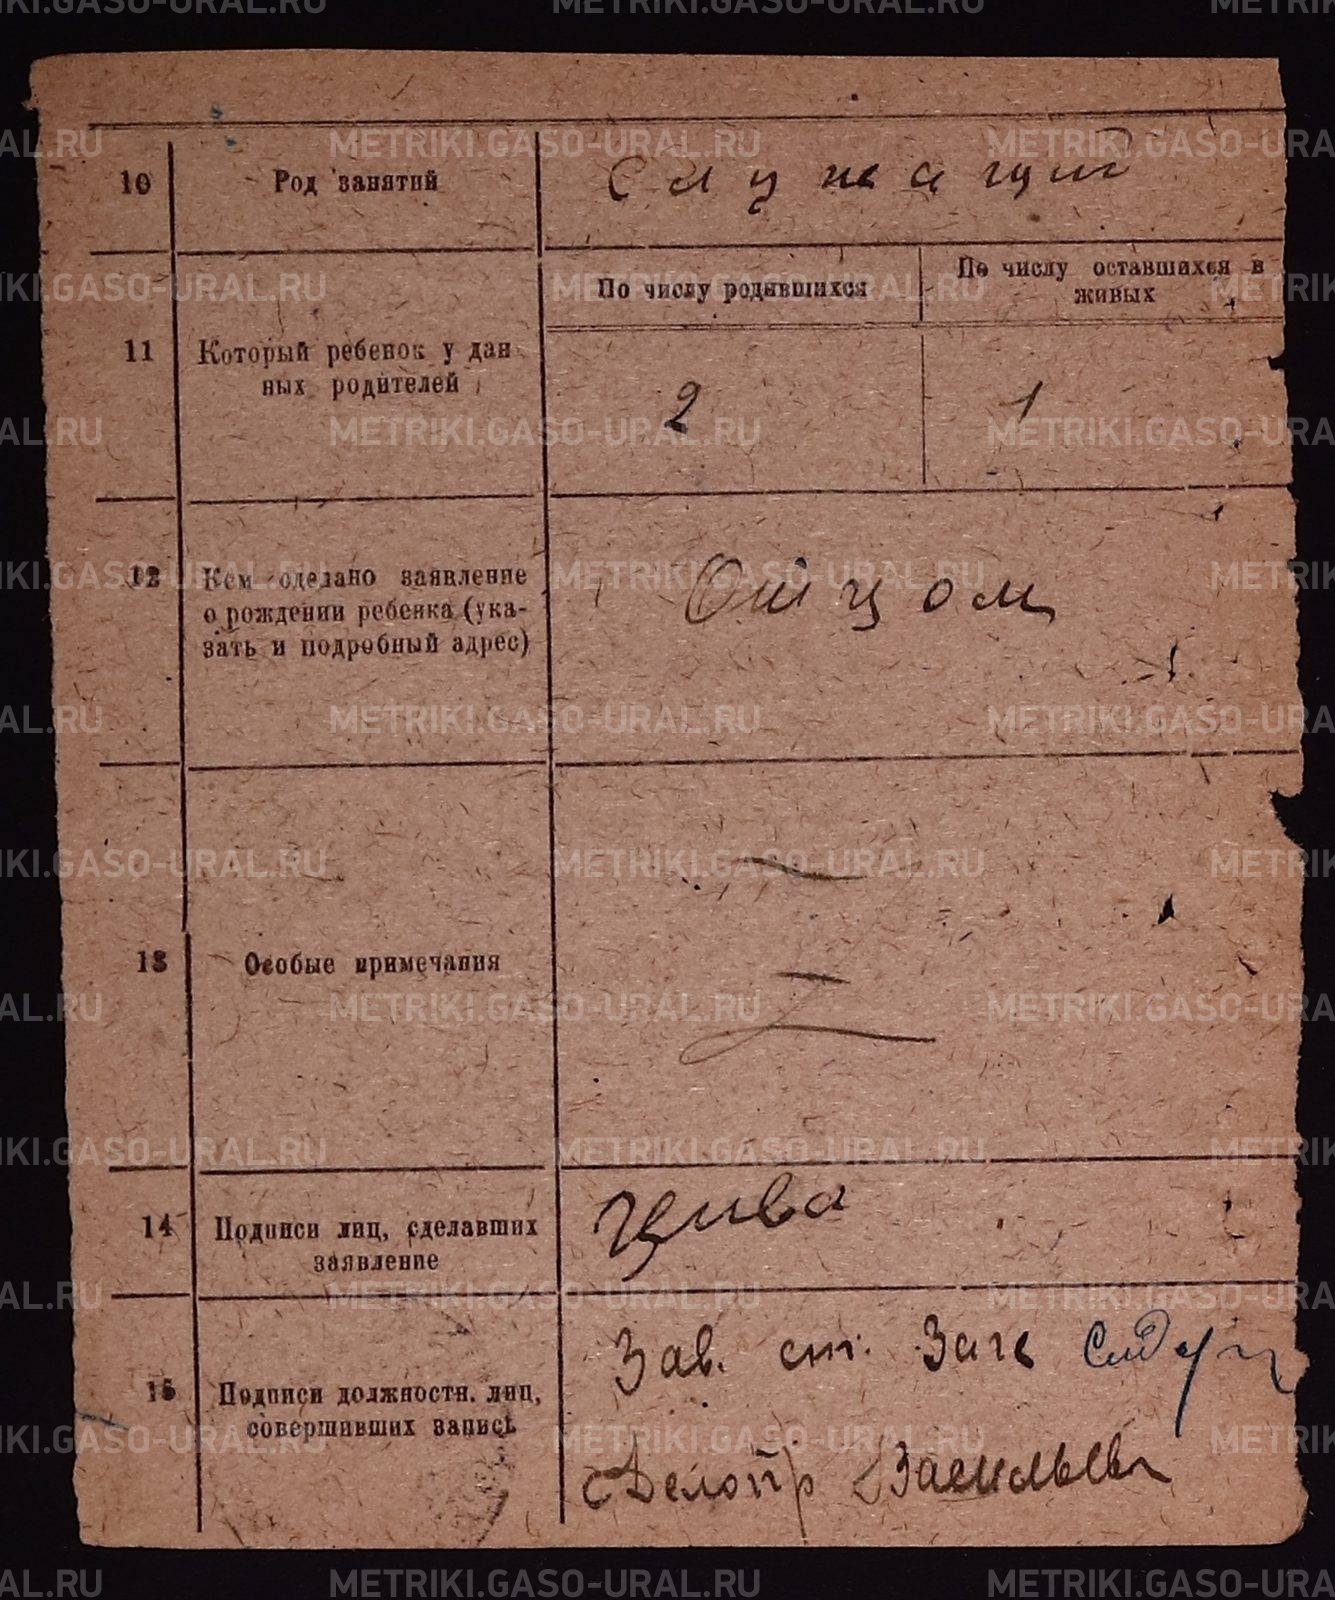 10 Род занятий Служащий
11 Который ребенок у дан
ных родителей
По числу родившихся
По числу оставшихся в
живых
2
1
12 Кем сделано заявление
о рождении ребенка (ука-
зать и подробный адрес)
Отцом
13 Особые примечания
14 Подписи лиц, сделавших
заявление
15 Подписи должностн. лиц,
совершивших запись
Зав. ст. Загс
Делопр Васильева
METRIKI.GASO-URAL.RU